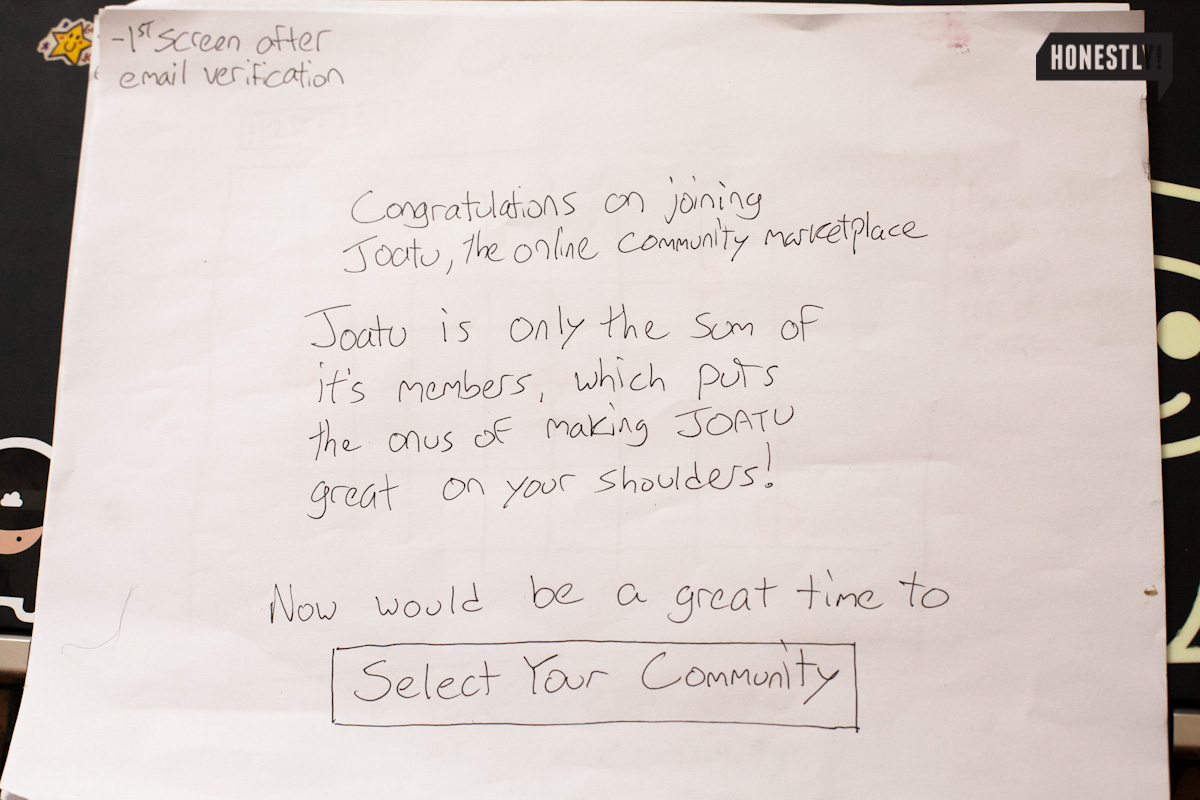 -1st Screen after
email verification
HONESTLY!
Congratulations on joining
Joatu, the online community marketplace
Joatu is only the sum of
it's members, which puts
the onus of making JOATU
great on your shoulders!
Now would be a great time to
Select Your Community